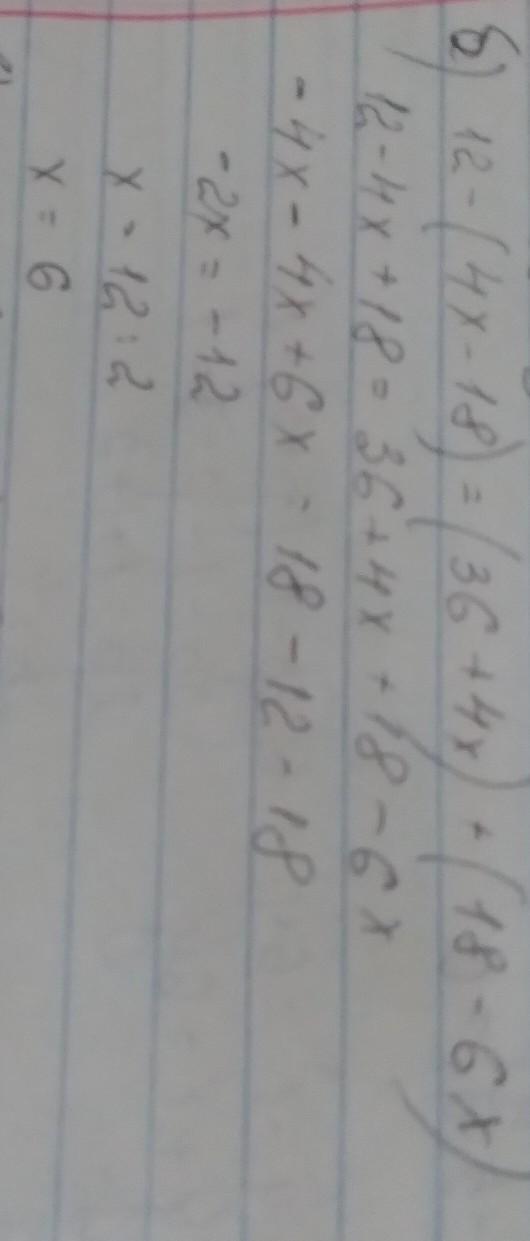 б) 12 - (4x - 18) = (36 + 4x) + (18 - 6x)
12 - 4x + 18 = 36 + 4x + 18 - 6x
- 4x - 4x + 6x = 18 - 12 - 18
- 2x = - 12
x = 12 : 2
x = 6